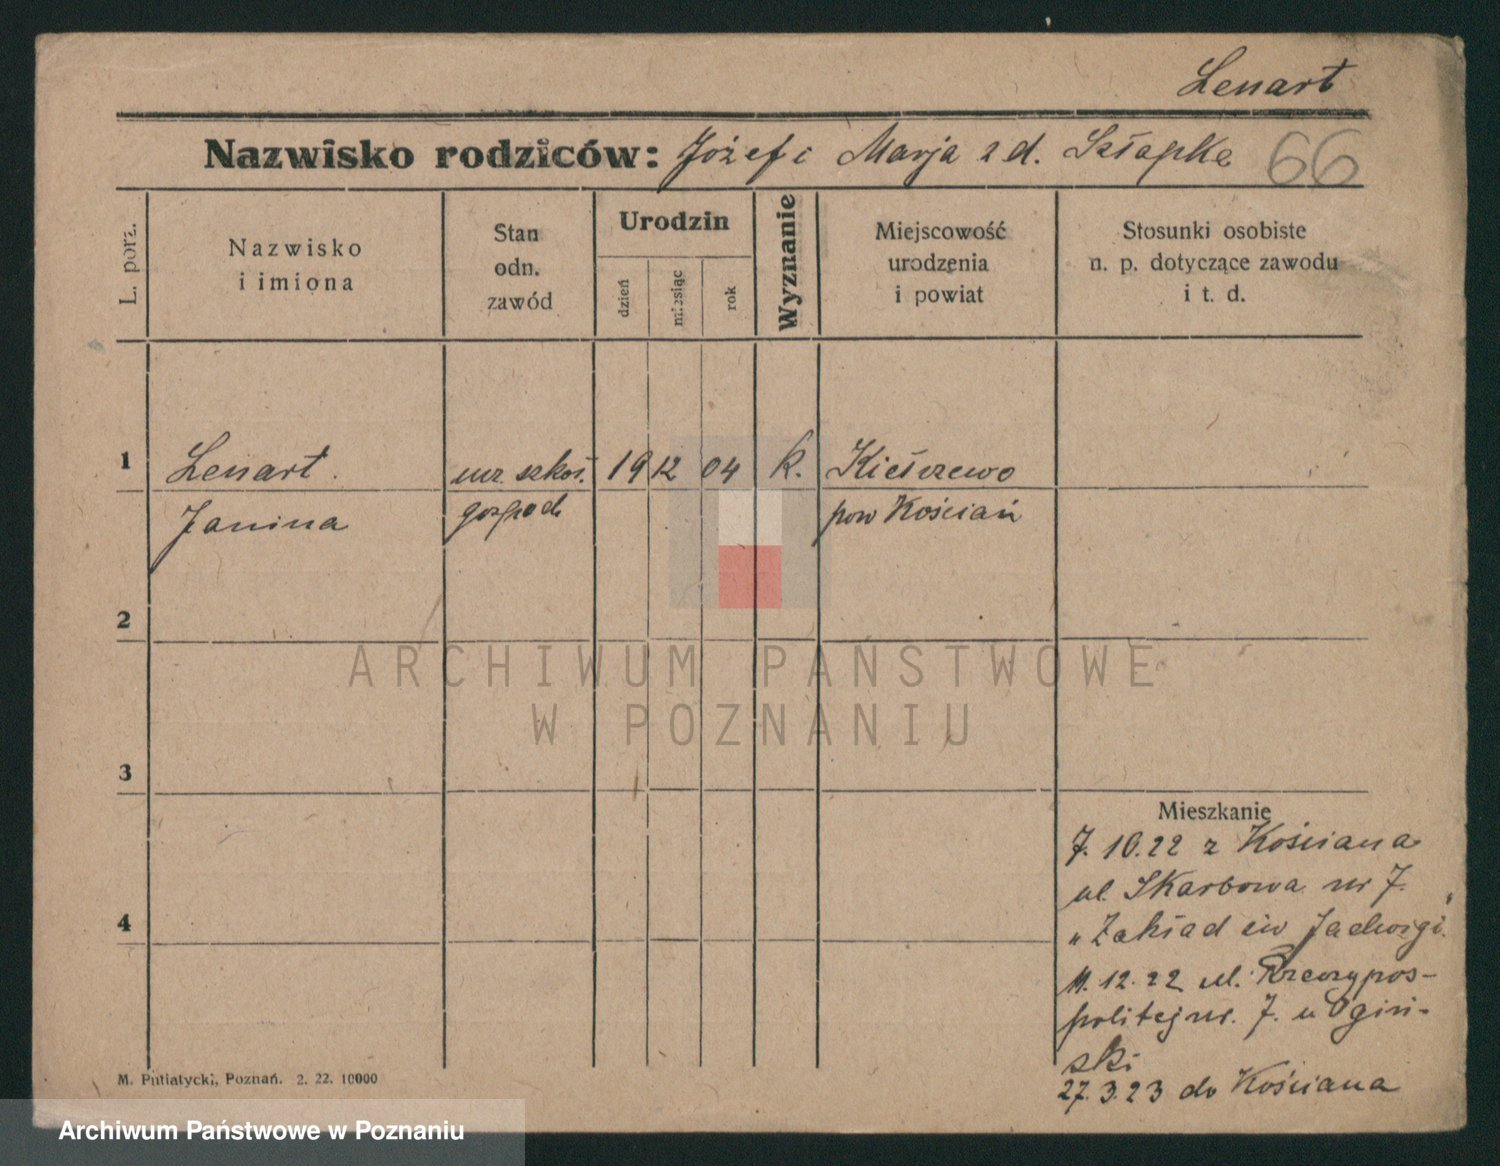 Lenart
Nazwisko rodziców: Józef i Marja z d. Szłapka 66
L. porz.
Nazwisko
i imiona
Stan
odn.
zawód
Urodzin
dzień
miesiąc
rok
Wyznanie
Miejscowość
urodzenia
i powiat
Stosunki osobiste
n. p. dotyczące zawodu
i t. d.
1 Lenart. ucz. szkoł. 19 12 04 k. Kiełczewo
Janina gospod. pow Kościan
2
3
4
Mieszkanie
7. 10. 22 z Kościana
ul. Skarbowa nr 7.
"Zakład św Jadwigi"
11. 12. 22 ul. Rzeczypos-
politej nr. 7. u Ogiń-
ski
27. 3. 23 do Kościana
M. Putiatycki, Poznań. 2. 22. 10000
ARCHIWUM PAŃSTWOWE
W POZNANIU
Archiwum Państwowe w Poznaniu